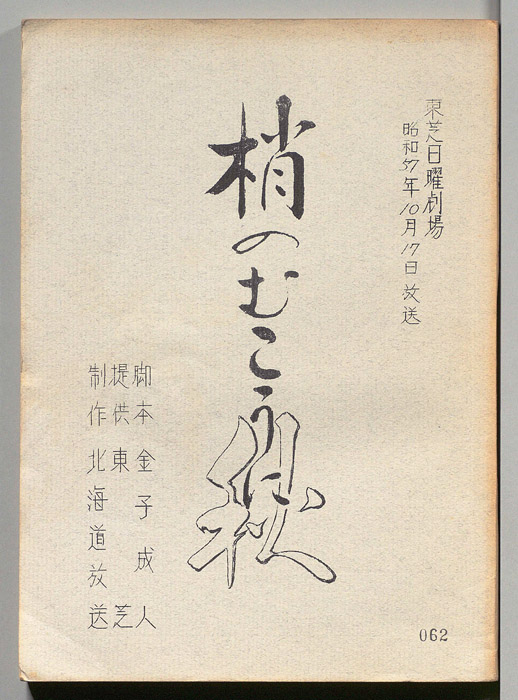 東芝日曜劇場
昭和57年10月17日放送
梢のむこうに秋
脚本 金子成人
提供 東芝
制作 北海道放送
062